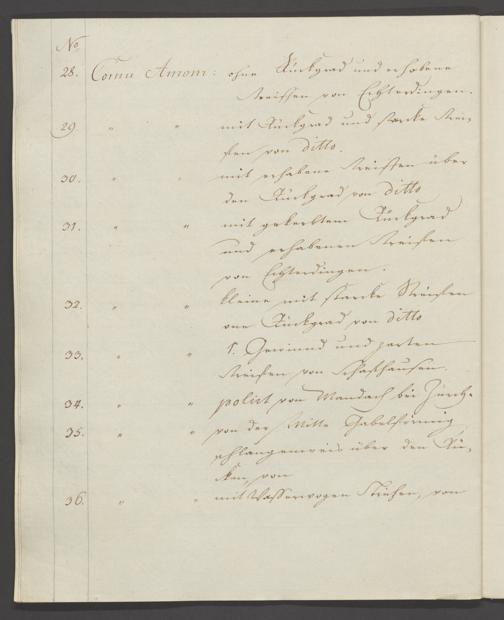 No
28. Cornu Amom: ohne Rückgrad und erhobene
Streiffen von Echterdingen.
29 " " mit Rückgrad und starcke Strei-
fen von ditto.
30. " " mit erhabene Streiffen über
den Rückgrad von ditto
31. " " mit gekerbtem Rückgrad
und erhabenen Streifen
von Echterdingen.
32. " " kleine mit starcke Streifen
one Rückgrad von ditto
33. " " Gewind und zarten
Streifen von Schafhausen.
34. " " polirt von Mandach bei Zürch
35. " " von der Mitte Gabelförmig
schlangenweis über den Rü-
cken, von
36. " " mit Wasserwogen Streifen, von